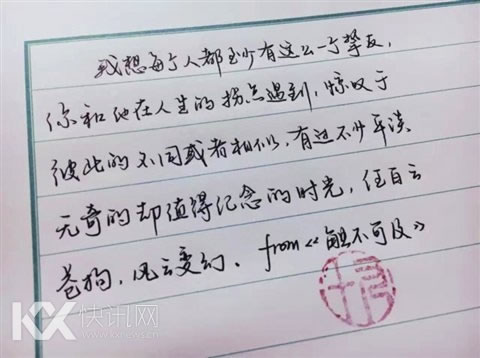 我想每个人都至少有这么一个挚友,
你和他在人生的拐点遇到,惊叹于
彼此的不同或者相似,有过不少平淡
无奇的却值得纪念的时光,任白云
苍狗,风云变幻、from《触不可及》
KX 快讯网